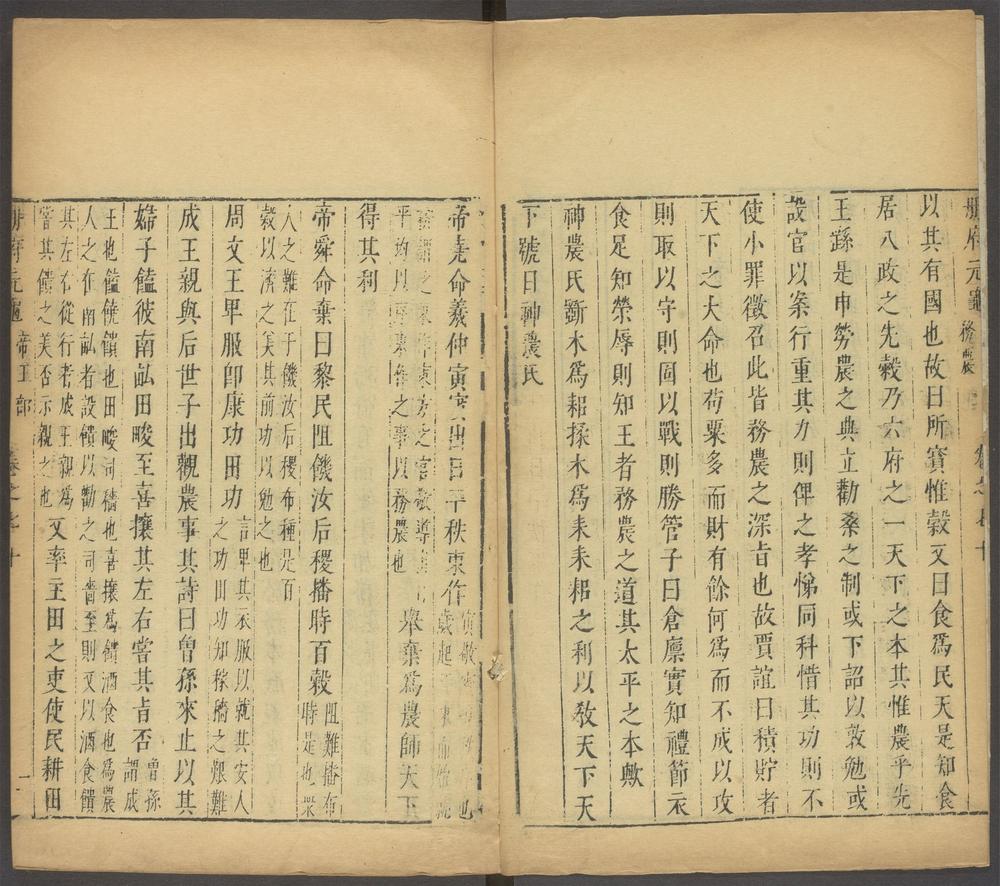 冊府元龜 務農
以其有國也故曰所寶惟穀又曰食爲民天是知食
居八政之先穀乃六府之一天下之本其惟農乎先
王繇是申勞農之典立勸桑之制或下詔以敦勉或
設官以案行重其力則俾之孝悌同科惜其功則不
使小罪徵召此皆務農之深旨也故賈誼曰積貯者
天下之大命也苟粟多而財有餘何爲而不成以攻
則取以守則固以戰則勝管子曰倉廩實知禮節衣
食足知榮辱則知王者務農之道其太平之本歟
神農氏斲木爲耜揉木爲耒耒耜之利以敎天下天
下號曰神農氏
帝堯命羲仲寅賓出日平秩東作
歲起
東方之官敬導
平均 之事以務農也
舉棄爲農師天下
得其利
帝舜命棄曰黎民阻饑汝后稷播時百穀
阻難播布
時是也眾
人之難在于饑汝后稷布種是百
穀以濟之美其前功以勉之也
周文王卑服卽康功田功
言卑其衣服以就其安人
之功田功知稼穡之艱難
成王親與后世子出觀農事其詩曰曾孫來止以其
婦子饁彼南畝田畯至喜攘其左右嘗其旨否
曾孫
謂成
王也饁饒饋也田畯司穡也喜攘爲饋酒食也爲農
人之在南畝者設饋以勸之司嗇至則又以酒食饋
其左右從行者成王親爲
嘗其饋之美否示親之也
又率主田之吏使民耕田
冊府元龜 帝王部